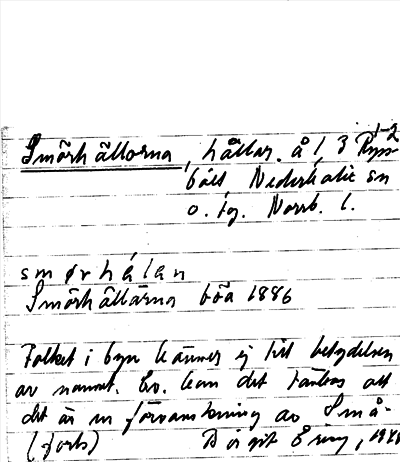 1-2
Smörhällorna, hällar å 1, 3 Ryss
bält, Nederkalix sn
o. tg. Norrb. l.
smørhálan
Smörhällärna böa 1886
Folket i byn känner ej till betydelsen
av namnet. Ev. kan det tänkas att
det är en förvanskning av Små-
(forts) Birgit